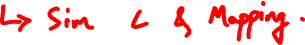 ↳ Sim C & Mapping.